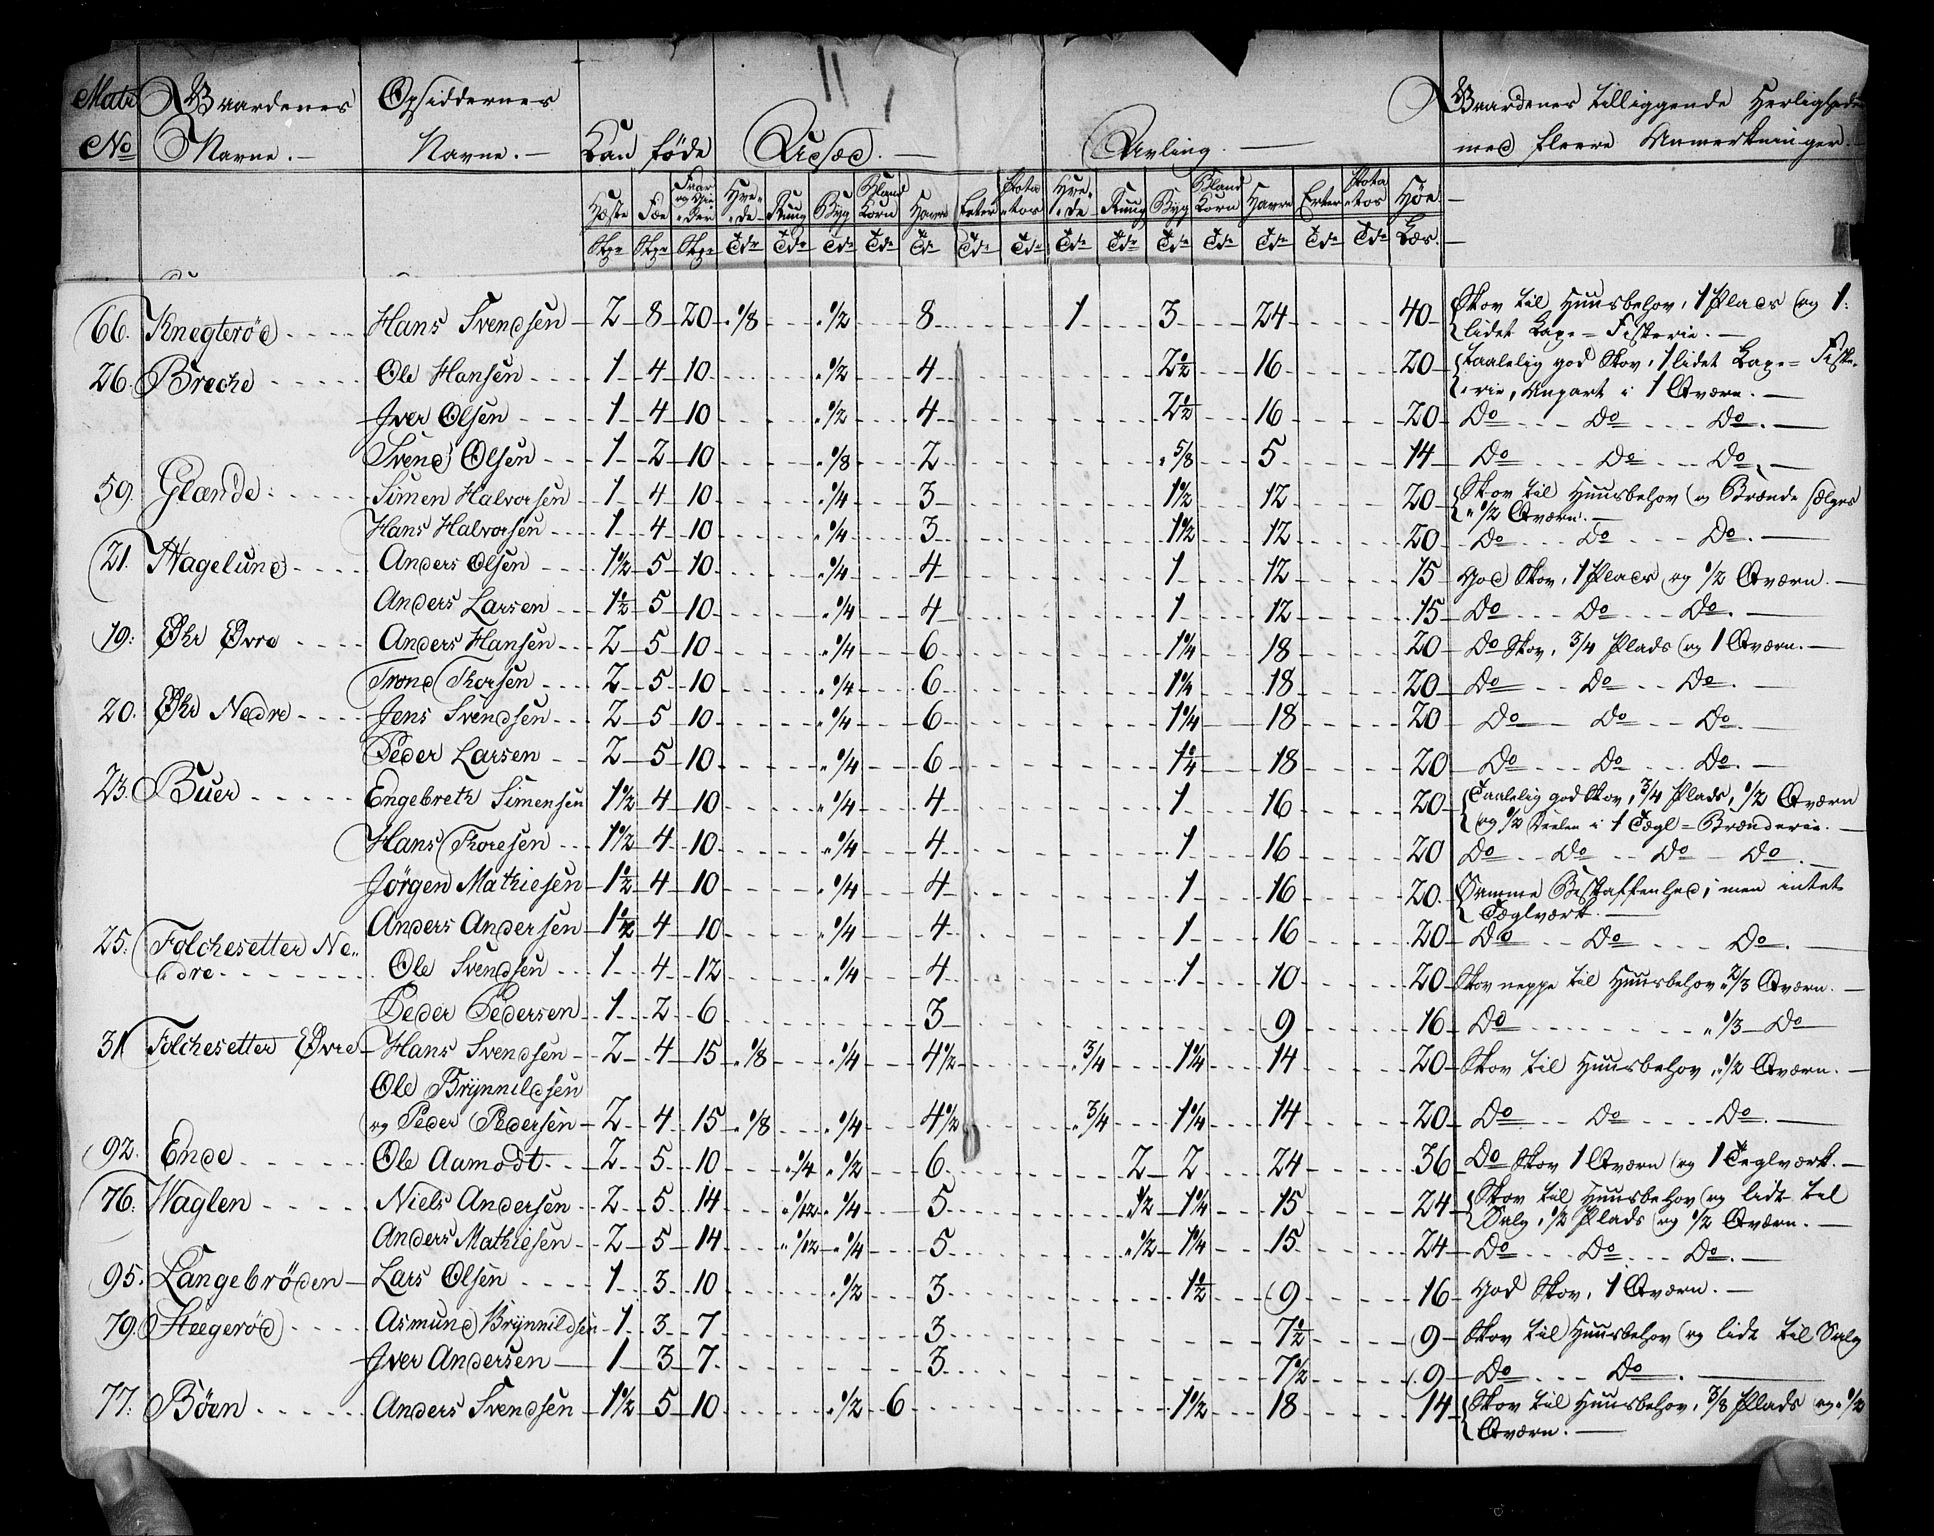 11
Matr Gaardenes Opsiddernes Gaardenes tilliggende Herligheder
No Navne. Navne. Kan føde Udsæd. Avling. med fleere Anmerkninger.
Hæste Fæe Faar og Gieder Hvede Rug Byg Bland Korn Havre Erter Potatos Hvede Rug Byg Bland Korn Havre Erter Potatos Høe
Stkr Stkr Stkr Tdr Tdr Tdr Tdr Tdr Tdr Tdr Tdr Tdr Tdr Tdr Tdr Tdr Tdr Læs.
66. Knegterød Hans Svendsen 2 8 20 1/8 1/2 8 1 3 24 40 Skov til Huusbehov, 1 Plads og 1
lidet Laxe=Fiskerie.
26. Breche Ole Hansen 1 4 10 1/2 4 2 1/2 16 20 taalelig god Skov, 1 lidet Laxe=Fiske
rie, Anpart i 1 Qværn.
Jver Olsen 1 4 10 1/2 4 2 1/2 16 20 Do Do Do.
Svend Olsen 1 2 10 1/8 2 5/8 5 14 Do Do Do.
59. Glænde Simen Halvorsen 1 4 10 1/4 3 1 1/2 12 20 Skov til Huusbehov og Brænde sælges
1/2 Qværn.
Hans Halvorsen 1 4 10 1/4 3 1 1/2 12 20 Do Do Do.
21. Hagelund Anders Olsen 1 1/2 5 10 1/4 4 1 12 15 God Skov, 1 Plads og 1/2 Qværn.
Anders Larsen 1 1/2 5 10 1/4 4 1 12 15 Do Do Do.
19. Øhr Øvre Anders Hansen 2 5 10 1/4 6 1 1/4 18 20 Do Skov, 3/4 Plads og 1 Qværn.
Trond Thorsen 2 5 10 1/4 6 1 1/4 18 20 Do Do Do.
20. Øhr Nedre Jens Svendsen 2 5 10 1/4 6 1 1/4 18 20 Do Do Do.
Peder Larsen 2 5 10 1/4 6 1 1/4 18 20 Do Do Do.
23. Buer Engebreth Simensen 1 1/2 4 10 1/4 4 1 16 20 Taalelig god Skov, 3/4 Plads, 1/2 Qværn
og 1/2 Deelen i 1 Tægl=Brænderie.
Hans Thoresen 1 1/2 4 10 1/4 4 1 16 20 Do Do Do Do.
Jørgen Mathiesen 1 1/2 4 10 1/4 4 1 16 20 Samme Beskaffenhed, men intet
Tæglværk.
Anders Andersen 1 1/2 4 10 1/4 4 1 16 20 Do Do Do.
25. Folchesetter Ne
dre Ole Svendsen 1 4 12 1/4 4 1 10 20 Skov neppe til Huusbehov 2/3 Qværn.
Peder Pedersen 1 2 6 3 9 16 Do 1/3 Do
31 Folchesetter Øvre Hans Svendsen 2 4 15 1/8 1/4 4 1/2 3/4 1 1/4 14 20 Skov til Huusbehov, 1/2 Qværn.
Ole Brynnildsen
og Peder Pedersen 2 4 15 1/8 1/4 4 1/2 3/4 1 1/4 14 20 Do Do Do.
92. Ende Ole Aamodt. 2 5 10 1/4 1/2 6 2 2 24 36 Do Skov 1 Qværn og 1 Teglværk.
76. Waglen Niels Andersen 2 5 14 1/12 1/4 5 1/2 1 1/4 15 24 Skov til Huusbehov og lidt til
Salg, 1/2 Plads og 1/2 Qværn.
Anders Mathiesen 2 5 14 1/12 1/4 5 1/2 1 1/4 15 24 Do Do Do.
95. Langebrøden Lars Olsen 1 3 10 1/2 3 1 1/2 9 16 God Skov, 1 Qværn.
79. Heegerød Asmund Brynnildsen 1 3 7 3 7 1/2 9 Skov til Huusbehov og lidt til Salg
Jver Andersen 1 3 7 3 7 1/2 9 Do Do.
77. Böen Anders Svendsen 1 1/2 5 10 1/2 6 1 1/2 18 14 Skov til Huusbehov, 3/8 Plads og 1/2
Qværn.